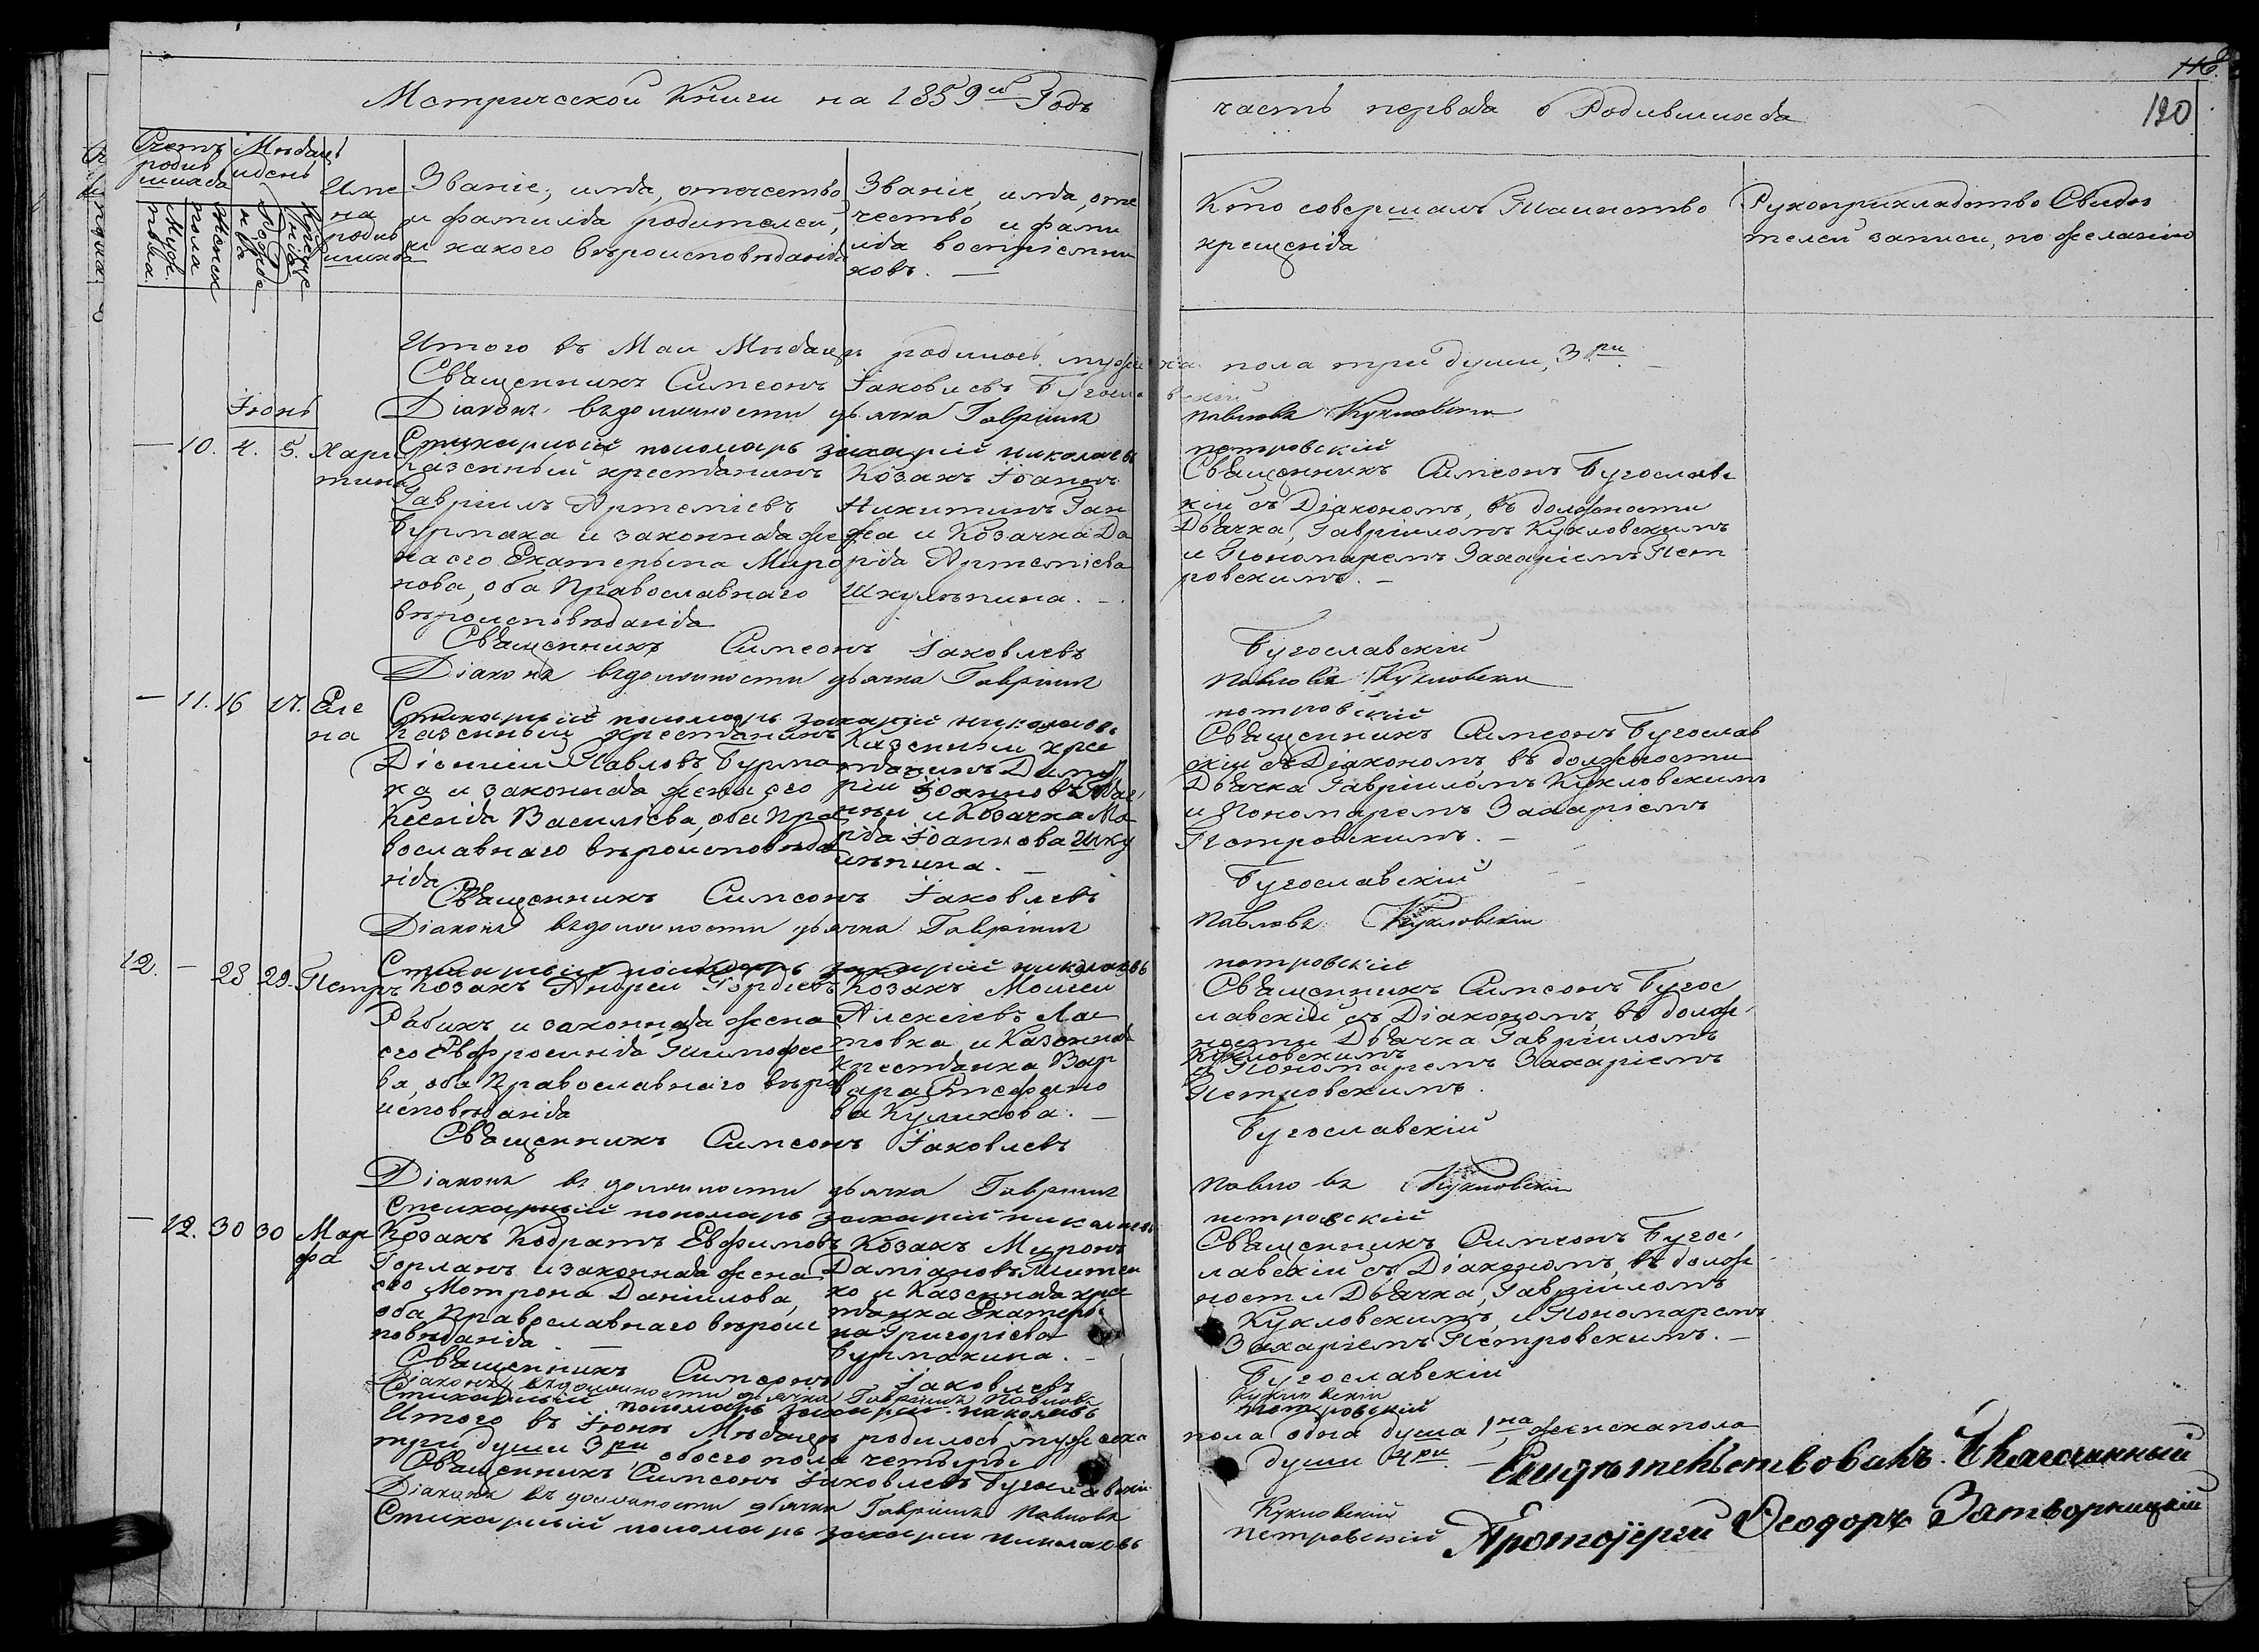 Метрической Книги на 1859й Годъ
часть первая о Родившихся
118.
120
Счетъ родив шихся
Мѣсяцъ и день
Муж. пола.
Женск пола
Рожде нія
Креще нія
Име на родив шихся
Званіе, имя, отечество
и фамилія родителей,
и какого вѣроисповѣданія
Званіе, имя, оте
чество и фами
лія воспріемни
ковъ. —
Кто совершалъ Таинство
крещенія
Рукоприкладство Свидѣ
телей записи, по желанію
Итого въ Маи Мѣсяцѣ родилось мужеска пола три души, 3ри. —
Священникъ Симеонъ Іаковлевъ Бугославскій
Діаконъ въ должности дьячка Гавріилъ Павловъ Кукловскій
Іюнь
Стихарный пономарь Захарій Николаевъ Петровскій
— 10. 4. 5. Хари
тина
Казенный крестьянинъ
Гавріилъ Артеміевъ
Бурмака и законная же
на его Екатерына Миро
нова, оба Православнаго
вѣроисповѣданія
Козакъ Іоаннъ
Никитинъ Ган
жа и Козачка Да
рія Артеміева
Шкулѣпина. —
Священникъ Симеонъ Бугослав
кій съ Діакономъ, въ должности
Дьячка, Гавріиломъ Кукловскимъ
и Пономаремъ Захаріемъ Пет
ровскимъ. —
Священникъ Симеонъ Іаковлевъ Бугославскій
Діаконъ въ должности дьячка Гавріилъ Павловъ Кукловскій
Стихарный пономарь Захарій Николаевъ Петровскій
— 11. 16 17. Еле
на
Казенный крестьянинъ
Діонисій Павловъ Бурма
ка и законная жена его
Ксенія Василіева, оба Пра
вославнаго вѣроисповѣда
нія
Казенный кре
стьянинъ Дими
рій Іоанновъ
и Козачка Ма
рія Іоаннова Шку
лѣпина. —
Священникъ Симеонъ Бугослав
скій съ Діакономъ въ должности
Дьячка Гавріиломъ Кукловскимъ
и Пономаремъ Захаріемъ
Петровскимъ. —
Священникъ Симеонъ Іаковлевъ Бугославскій
Діаконъ въ должности дьячка Гавріилъ Павловъ Кукловскій
Стихарный пономарь Захарій Николаевъ Петровскій
12. — 28 29. Петръ
Козакъ Андрей Гордіевъ
Рабикъ и законная жена
его Евфросинія Тимофее
ва, оба Православнаго вѣро
исповѣданія
Козакъ Моисей
Алексіевъ Ла
товка и Казенная
крестьянка Вар
вара Стефано
ва Куликова. —
Священникъ Симеонъ Бугос
лавскій съ Діакономъ, въ долж
ности Дьячка Гавріиломъ
Кукловскимъ
и Пономаремъ Захаріемъ
Петровскимъ.
Священникъ Симеонъ Іаковлевъ Бугославскій
Діаконъ въ должности дьячка Гавріилъ Павловъ Кукловскій
Стихарный пономарь Захарій Николаевъ Петровскій
— 12. 30 30 Мар
фа
Козакъ Кодратъ Евфимовъ
Горланъ и законная жена
его Мотрона Даніилова,
оба Православнаго вѣроис
повѣданія —
Козакъ Муронъ
Даміановъ
ко и Казенная кре
стьянка Екатери
на Григоріева
Бурмакина. —
Священникъ Симеонъ Бугос
лавскій съ Діакономъ, въ долж
ности Дьячка, Гавріиломъ
Кукловскимъ, и Пономаремъ
Захаріемъ Петровскимъ. —
Священникъ Симеонъ Іаковлевъ Бугославскій
Діаконъ въ должности дьячка Гавріилъ Павловъ Кукловскій
Стихарный пономарь Захарій Николаевъ Петровскій
Итого въ Іюнѣ Мѣсяцѣ родилось мужеска пола одна душа 1на, женска пола
три души 3ри обоего пола четыре души 4ри. —
Священникъ Симеонъ Іаковлевъ Бугославскій
Діаконъ въ должности дьячка Гавріилъ Павловъ Кукловскій
Стихарный пономарь Захарій Николаевъ Петровскій
Свидѣтельствовалъ Благочинный
Протоіерей Ѳеодоръ Затворницкій